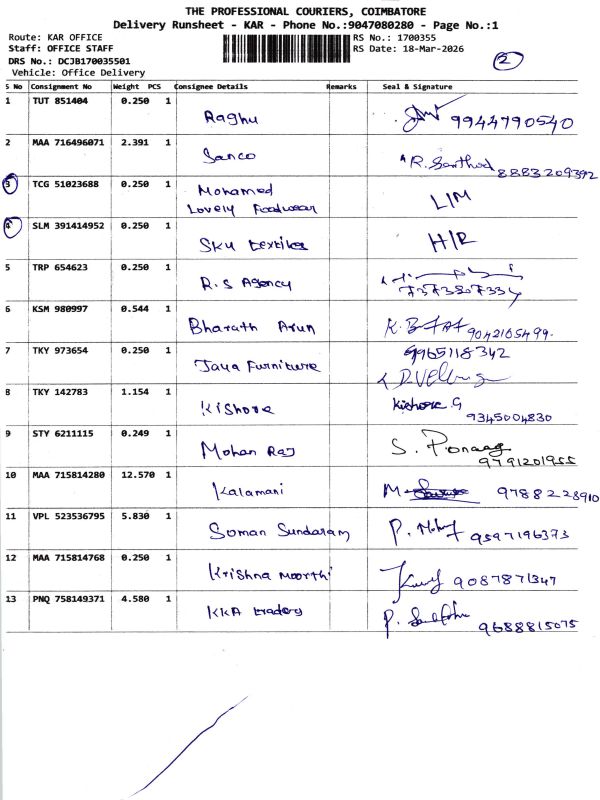 THE PROFESSIONAL COURIERS, COIMBATORE
Delivery Runsheet - KAR - Phone No.:9047080280 - Page No.:1
Route: KAR OFFICE RS No.: 1700355
Staff: OFFICE STAFF RS Date: 18-Mar-2026
DRS No.: DCJB170035501
Vehicle: Office Delivery
2
S No Consignment No Weight PCS Consignee Details Remarks Seal & Signature
1 TUT 851404 0.250 1 Raghu 9944790540
2 MAA 716496071 2.391 1 Sanco R. 8883209392
3 TCG 51023688 0.250 1 Mohamed
Lovely Footwear L/M
4 SLM 391414952 0.250 1 SKU textiles H/R
5 TRP 654623 0.250 1 R.S Agency 7373807334
6 KSM 980997 0.544 1 Bharath Arun K. 9042165499.
7 TKY 973654 0.250 1 Jaya Furniture 9965118342
8 TKY 142783 1.154 1 Kishore Kishore G
9345004830
9 STY 6211115 0.249 1 Mohan Raj S.
9791201955
10 MAA 715814280 12.570 1 Kalamani M 9788228910
11 VPL 523536795 5.830 1 Soman Sundaram P. 9597196373
12 MAA 715814768 0.250 1 Krishna moorthi 9087871347
13 PNQ 758149371 4.580 1 KKA traders P.
9688815075